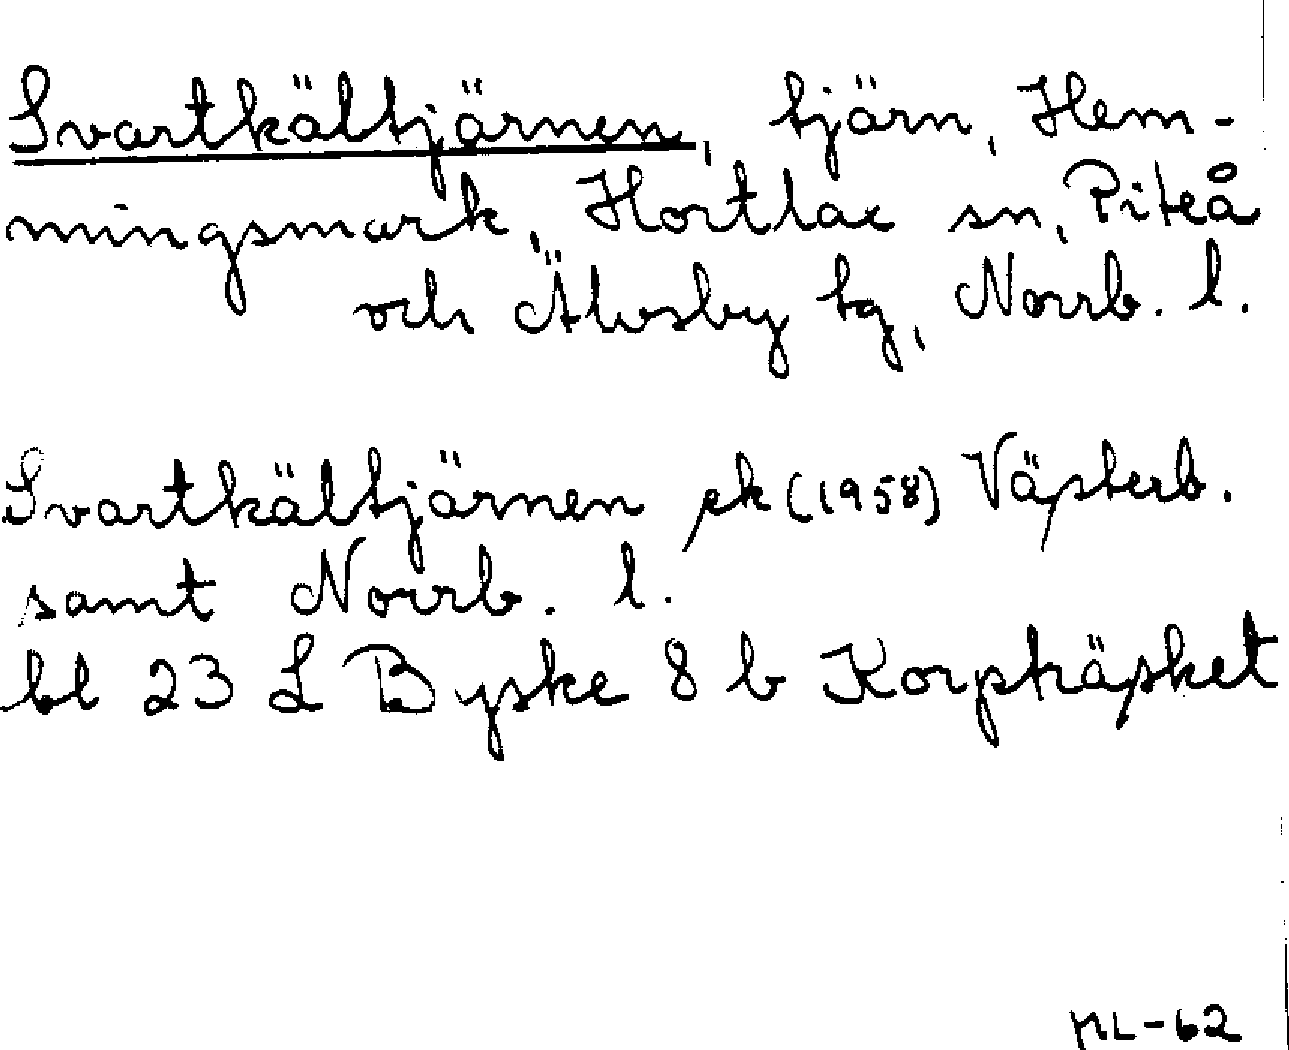 Svartkältjärnen, tjärn, Hem-
mingsmark, Hortlax sn, Piteå
och Älvsby tg, Norrb. l.
Svartkältjärnen ek (1958) Västerb.
samt Norrb. l.
bl 23 L Byske 8 b Korpträsket
ML-62